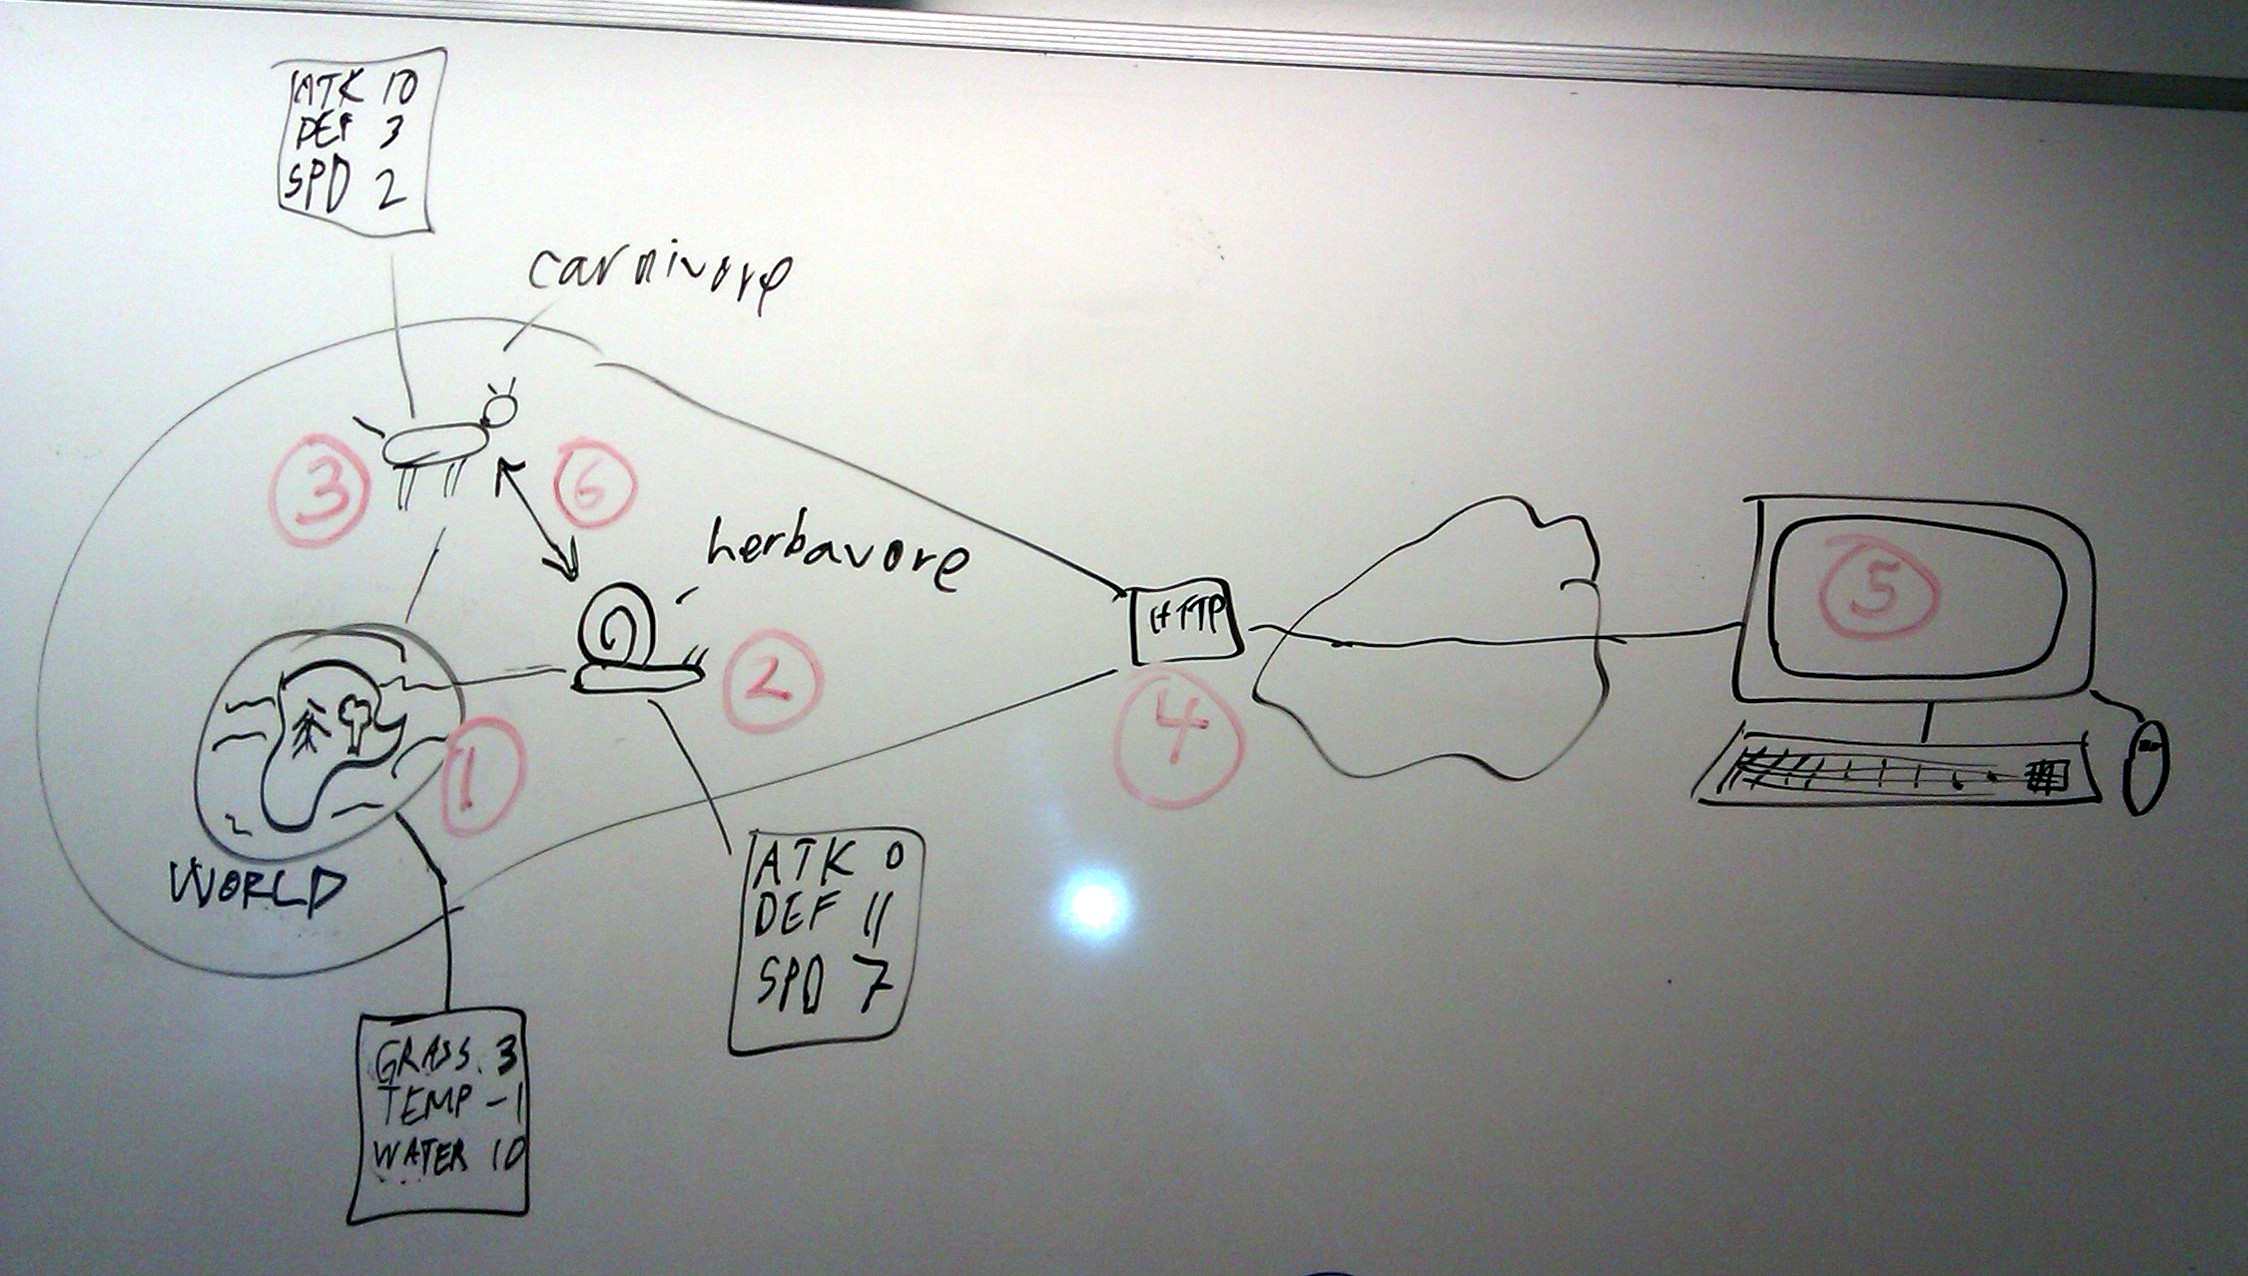 ATK 10
DEF 3
SPD 2
carnivore
3
6
herbavore
2
1
WORLD
HTTP
4
5
ATK 0
DEF 11
SPD 7
GRASS 3
TEMP -1
WATER 10